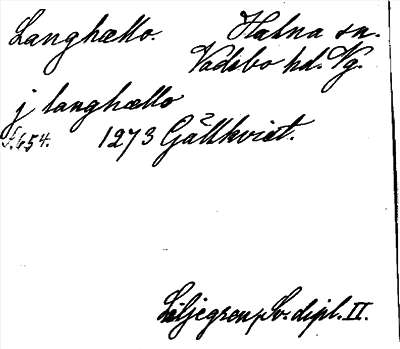 Langhællo. Halna sn.
Vadsbo hd. Vg.
j langhællo
s. 654. 1273 Gällkvist.
Liljegren, Sv. dipl. II.